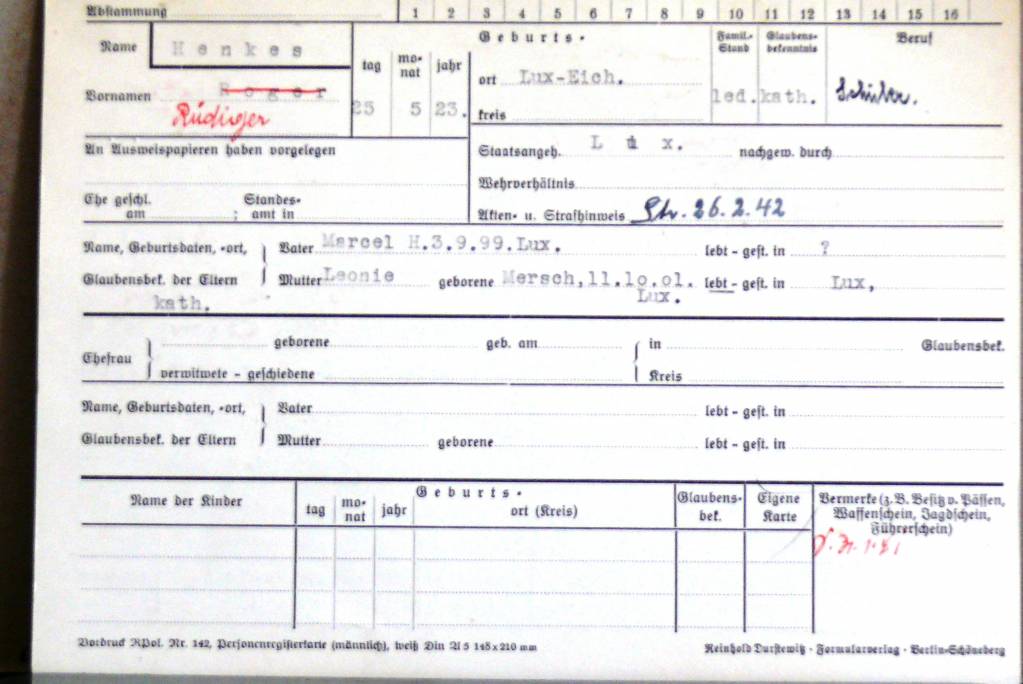 Abstammung 1 2 3 4 5 6 7 8 9 10 11 12 13 14 15 16
Name Henkes
Geburts-
tag mo-nat jahr
ort Lux-Eich.
Famil.-Stand
Glaubens-bekenntnis
Beruf
Vornamen Roger
Rüdiger
25 5 23.
kreis
led. kath. Schüler.
An Ausweispapieren haben vorgelegen
Staatsangeh. Lux. nachgew. durch
Wehrverhältnis
Ehe geschl. am ; Standes-amt in
Akten- u. Strafhinweis Str. 26.2.42
Name, Geburtsdaten, -ort, Vater Marcel H.3.9.99.Lux. lebt - gest. in ?
Glaubensbek. der Eltern Mutter Leonie geborene Mersch,11.10.01. lebt - gest. in Lux,
kath. Lux.
geborene geb. am in Glaubensbek.
Ehefrau
verwitwete - geschiedene Kreis
Name, Geburtsdaten, -ort, Vater lebt - gest. in
Glaubensbek. der Eltern Mutter geborene lebt - gest. in
Name der Kinder
Geburts-
tag mo-nat jahr ort (Kreis)
Glaubens-bek.
Eigene Karte
Vermerke (z. B. Besitz v. Pässen,
Waffenschein, Jagdschein,
Führerschein)
Vordruck RPol. Nr. 142, Personenregisterkarte (männlich), weiß Din A 5 148 x 210 mm
Reinhold Durstewitz · Formularverlag · Berlin-Schöneberg